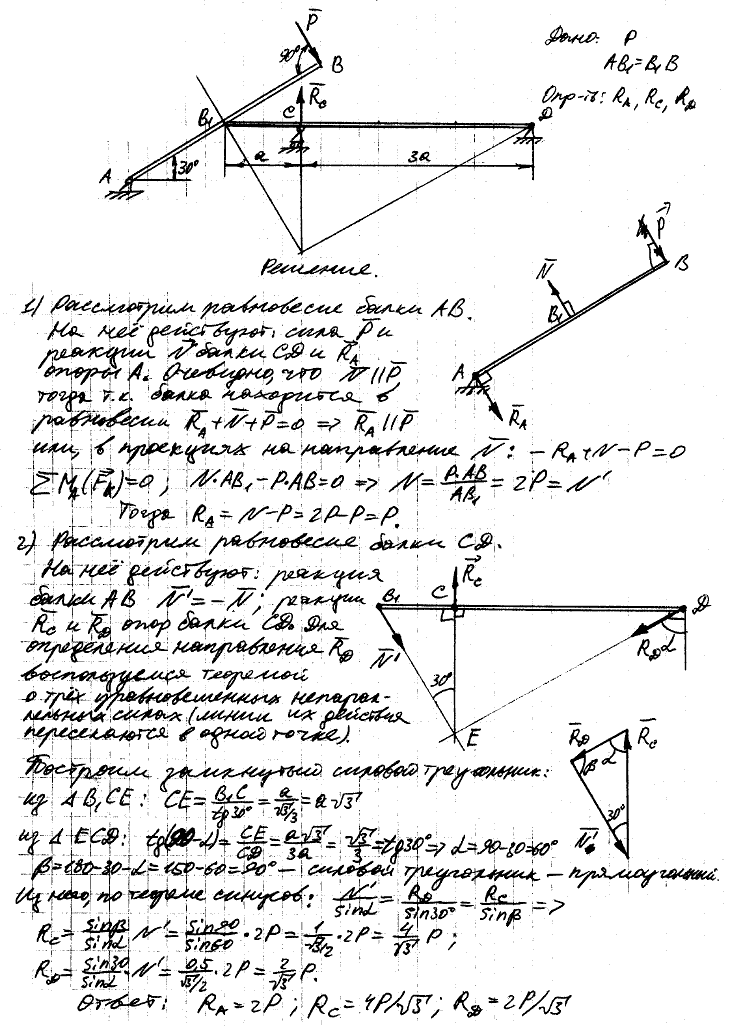 P̅
Дано: P
90°
B
AB₁=B₁B
R̅c
Опр-ть: R_A, R_C, R_D
B₁
C
D
A
30°
a
3a
Решение.
P̅
B
N̅
B₁
A
R̅_A
1) Рассмотрим равновесие балки AB.
На неё действуют: сила P̅ и
реакции N̅ балки CD и R̅_A
опоры A. Очевидно, что N̅ || P̅
тогда т.к. балка находится в
равновесии R̅_A+N̅+P̅=0 => R̅_A||P̅
или, в проекциях на направление N̅: -R_A+N-P=0
∑M_A(F̅_k)=0; N·AB₁-P·AB=0 => N=P·AB/AB₁=2P=N'
Тогда R_A=N-P=2P-P=P.
2) Рассмотрим равновесие балки CD.
На неё действуют: реакция
балки AB N̅'=-N̅; реакции
R̅_C и R̅_D опор балки CD. Для
определения направления R̅_D
воспользуемся теоремой
о трёх уравновешенных непарал-
лельных силах (линии их действия
пересекаются в одной точке).
R̅_C
B₁
C
D
N̅'
R_D
α
30°
E
R̅_D
R̅_C
β
α
30°
N̅'
Построим замкнутый силовой треугольник:
из ΔB₁CE: CE=B₁C/tg30°=a/(√3/3)=a√3
из ΔECD: tg(90-α)=CE/CD=a√3/3a=√3/3=tg30° => α=90-30=60°
β=180-30-α=150-60=90° – силовой треугольник – прямоугольный.
Из него, по теореме синусов: N'/sinα=R_D/sin30°=R_C/sinβ =>
R_C=sinβ/sinα N'=sin90/sin60·2P=1/(√3/2)·2P=4/√3 P;
R_D=sin30/sinα·N'=0,5/(√3/2)·2P=2/√3 P.
Ответ: R_A=2P; R_C=4P/√3; R_D=2P/√3